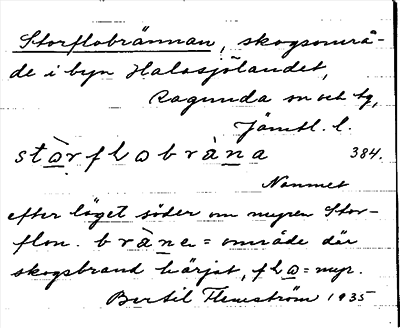 Storflobrännan, skogsområ-
de i byn Halasjölandet,
Ragunda sn och tg,
Jämtl. l.
stàrflobràna 384.
Namnet
efter läget söder om myren Stor-
flon. bràna = område där
skogsbrand härjat, flo = myr.
Bertil Flemström 1935